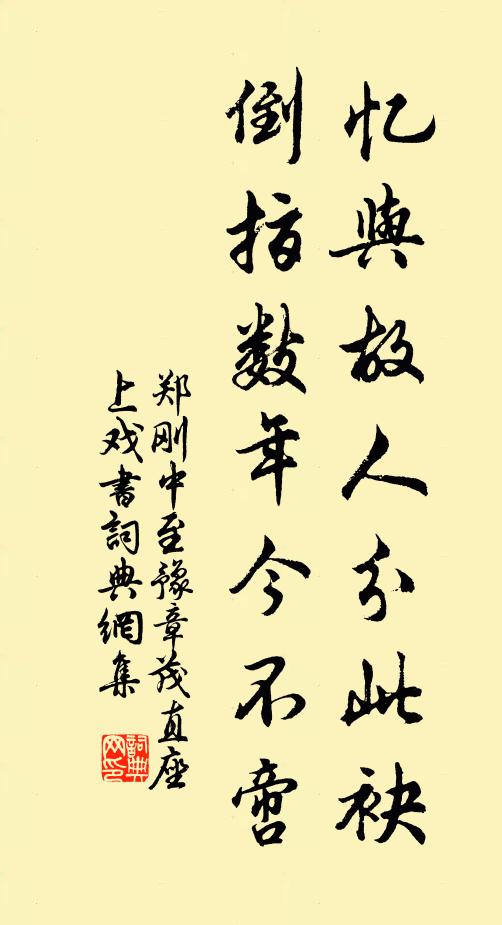 忆與故人分此袂
倒指數年今不啻
郑刚中至豫章茂直座
上戏書詞典網集
詞典
网印